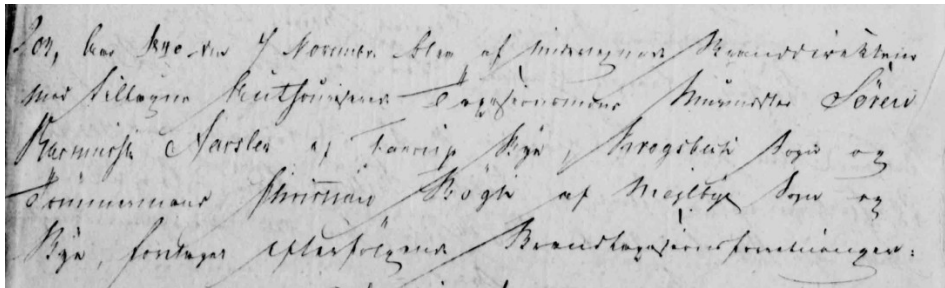 den 7 November blev af undertegnede Branddirekteur
med tillagne Authoriserede Taxationsmænd Muurmester Sören
Rasmussen af Taarup Bye, Krogsbek Sogn og
Tömmermand Christian Bögh af Mejlbye Sogn og
Bye, foretaget efterfölgende Brandtaxationsforretninger: